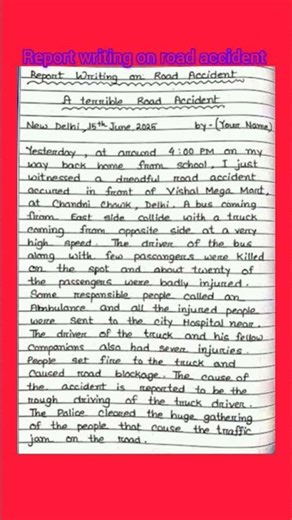 Report writing on road accident
Report Writing on Road Accident
A terrible Road Accident
New Delhi, 15th June, 2025 by - (Your Name)
Yesterday, at around 4:00 PM on my
way back home from school, I just
witnessed a dreadful road accident
accured in front of Vishal Mega Mart,
at Chandni Chowk, Delhi. A bus coming
from East side collide with a truck
coming from opposite side at a very
high speed. The driver of the bus
along with few passangers were killed
on the spot and about twenty of
the passengers were badly injured.
Some responsible people called an
Ambulance and all the injured people
were sent to the city Hospital near.
The driver of the truck and his fellow
companions also had sever injuries.
People set fire to the truck and
caused road blockage. The cause of
the accident is reported to be the
rough driving of the truck driver.
The Police cleared the huge gathering
of the people that cause the traffic
jam on the road.